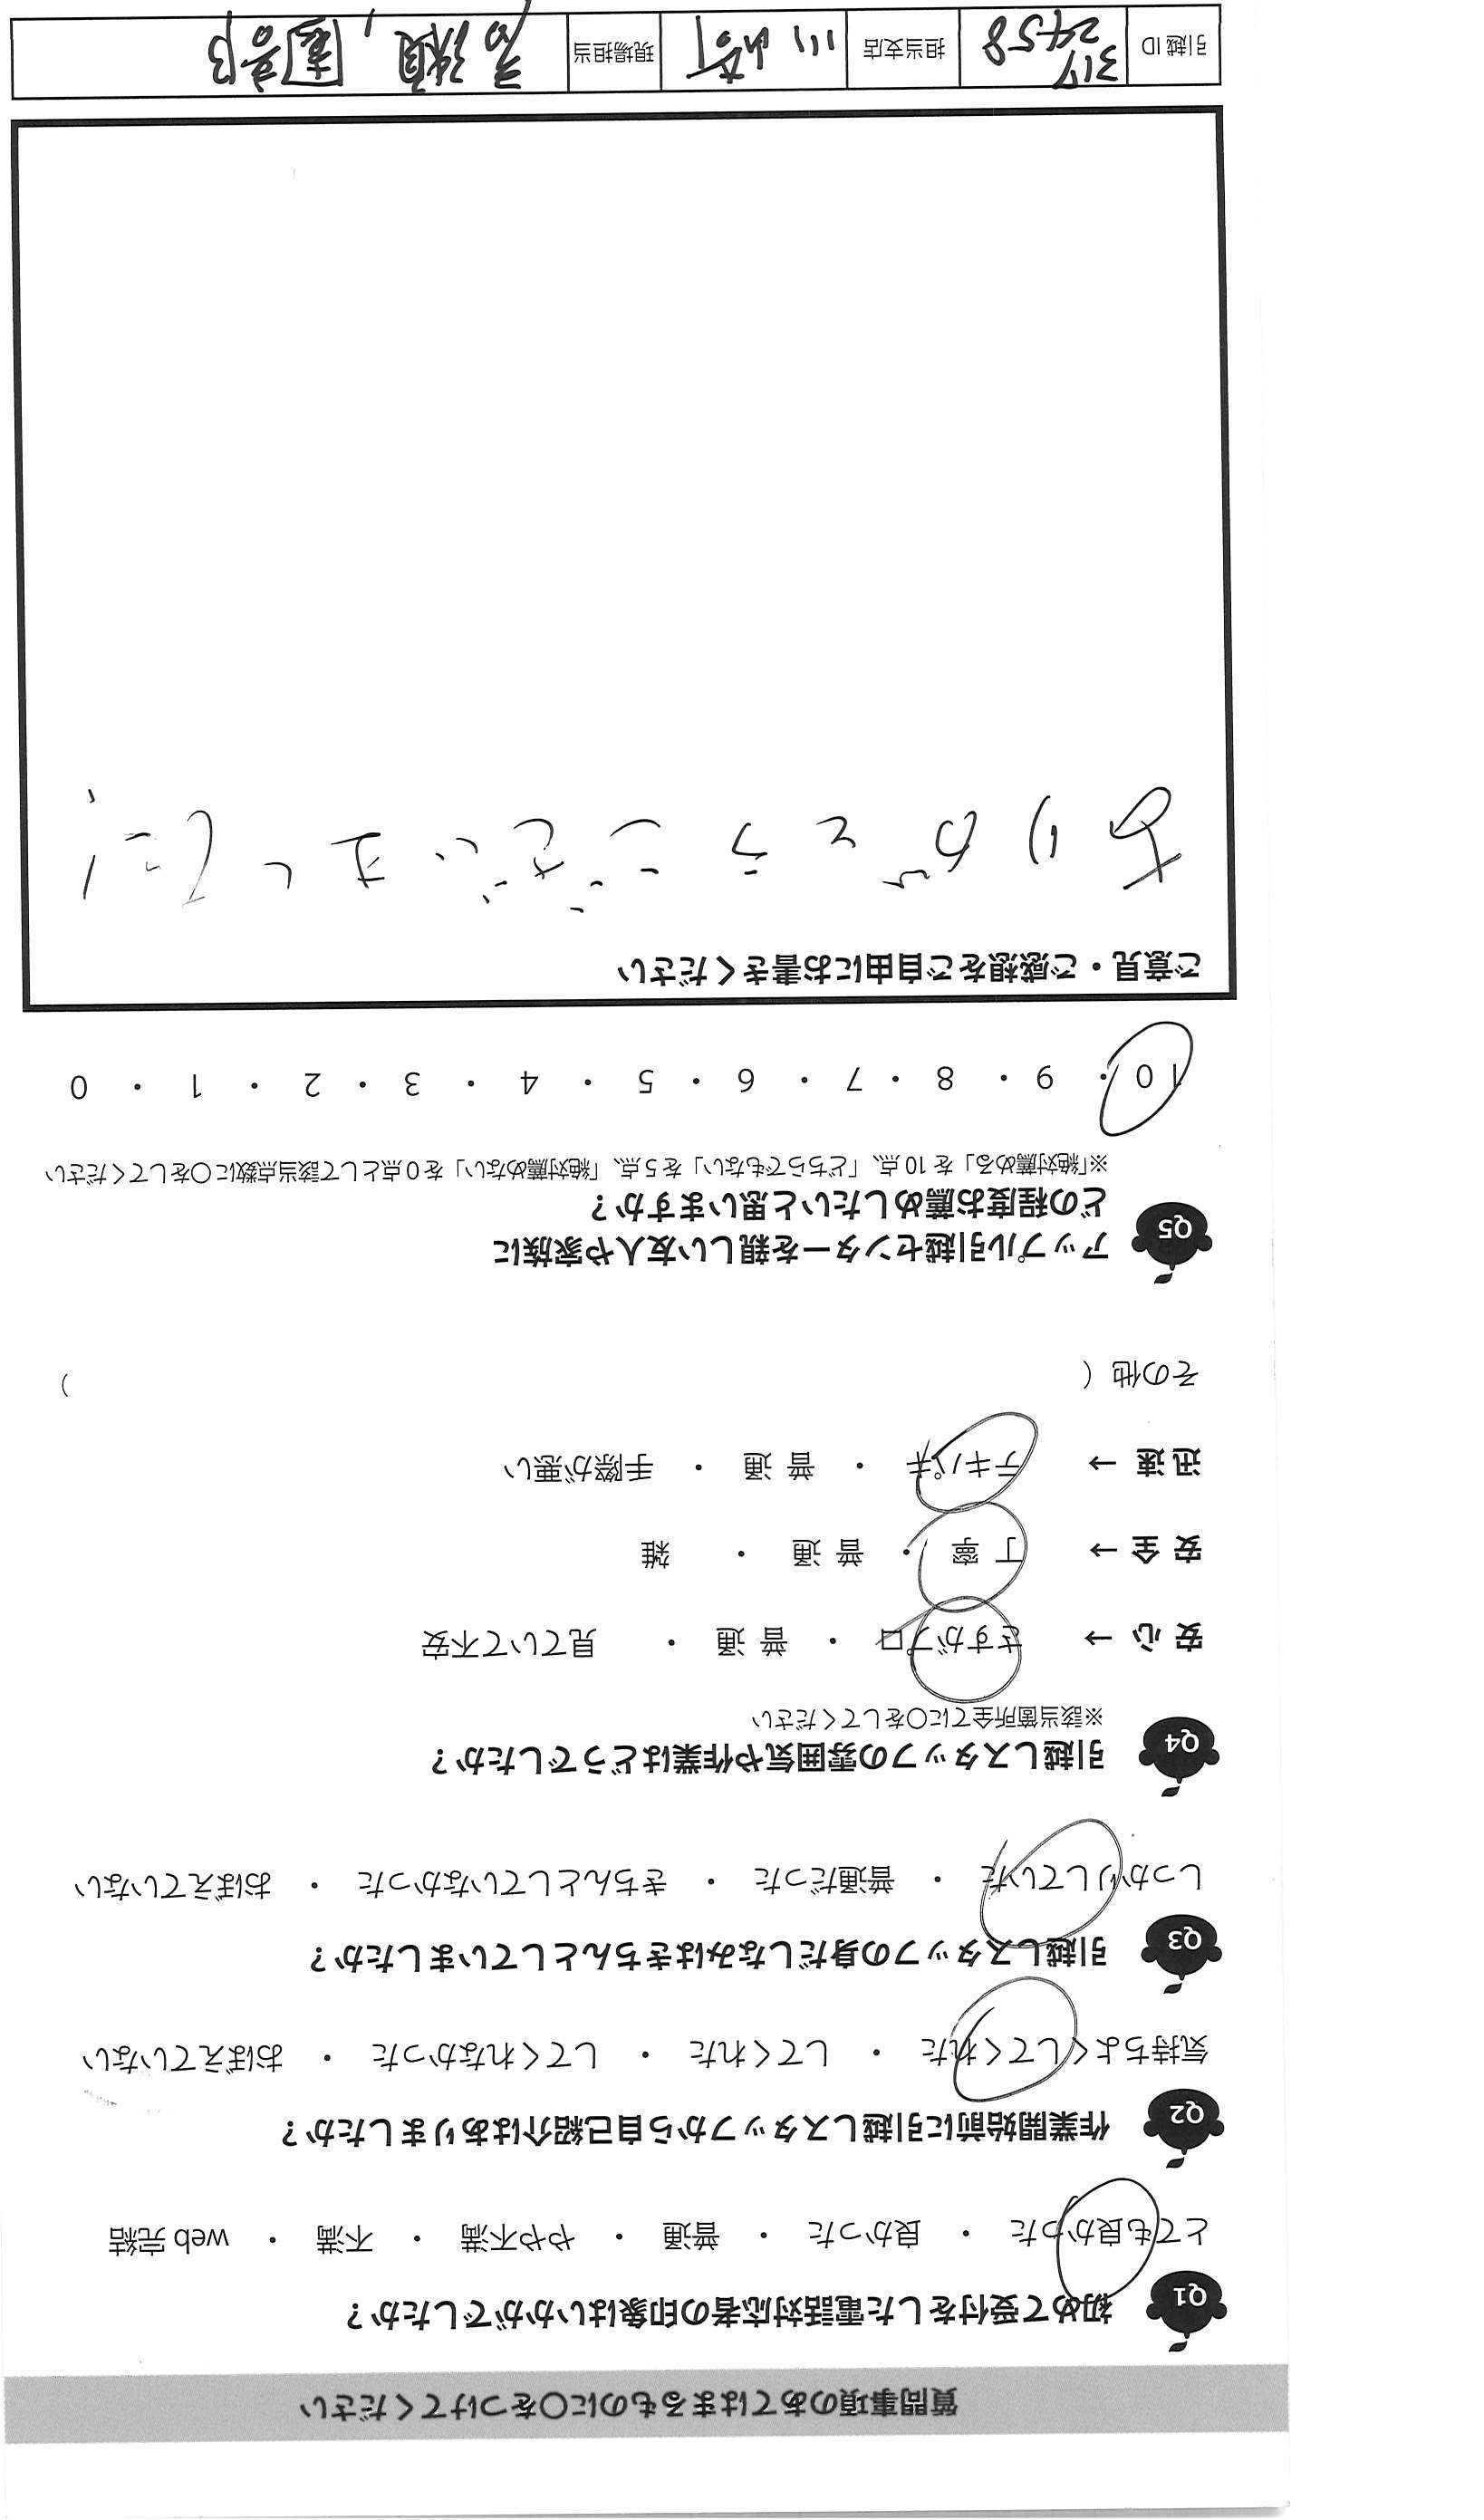 質問事項のあてはまるものに〇をつけてください
Q1 初めて受付をした電話対応者の印象はいかがでしたか？
とても良かった ・ 良かった ・ 普通 ・ やや不満 ・ 不満 ・ web 完結
Q2 作業開始前に引越しスタッフから自己紹介はありましたか？
気持ちよくしてくれた ・ してくれた ・ してくれなかった ・ おぼえていない
Q3 引越しスタッフの身だしなみはきちんとしていましたか？
しっかりしていた ・ 普通だった ・ きちんとしていなかった ・ おぼえていない
Q4 引越しスタッフの雰囲気や作業はどうでしたか？
※該当箇所全てに〇をしてください
安 心 → さすがプロ ・ 普 通 ・ 見ていて不安
安 全 → 丁 寧 ・ 普 通 ・ 雑
迅 速 → テキパキ ・ 普 通 ・ 手際が悪い
その他（ ）
Q5 アップル引越センターを親しい友人や家族に
どの程度お薦めしたいと思いますか？
※「絶対薦める」を 10 点、「どちらでもない」を 5 点、「絶対薦めない」を 0 点として該当点数に〇をしてください
10 ・ 9 ・ 8 ・ 7 ・ 6 ・ 5 ・ 4 ・ 3 ・ 2 ・ 1 ・ 0
ご意見・ご感想をご自由にお書きください
ありがとうございました！
引越 ID 317 2458 担当支店 川崎 現場担当